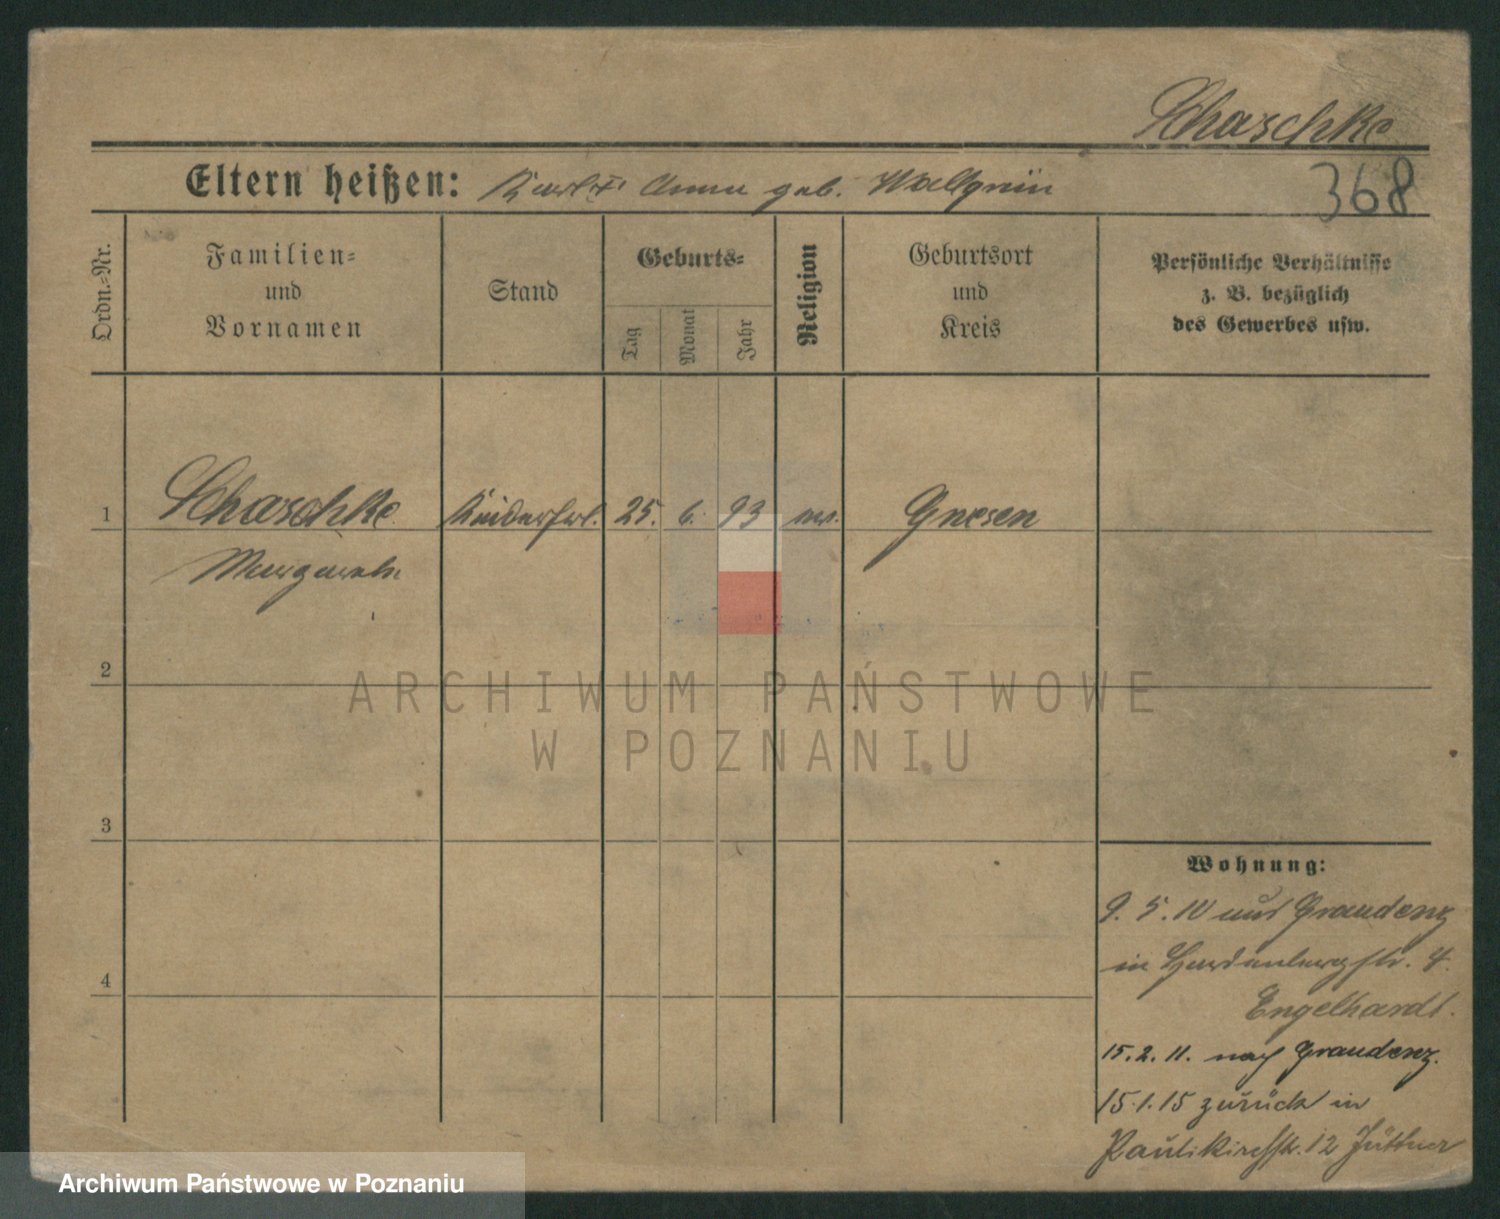 Schaschke
Eltern heißen: Karl u. Anna geb. Wallgrün
368
Ordn.-Nr.
Familien-
und
Vornamen
Stand
Geburts-
Tag
Monat
Jahr
Religion
Geburtsort
und
Kreis
Persönliche Verhältnisse
z. B. bezüglich
des Gewerbes usw.
1 Schaschke Kinderfrl. 25. 6. 93 ev. Gnesen
Margarete
2
3
4
Wohnung:
9. 5. 10 aus Graudenz
in Hardenbergstr. 4.
Engelhardt.
15. 2. 11. nach Graudenz.
15.1.15 zurück in
Paulikirchstr. 12 Jüttner
ARCHIWUM PAŃSTWOWE
W POZNANIU
Archiwum Państwowe w Poznaniu